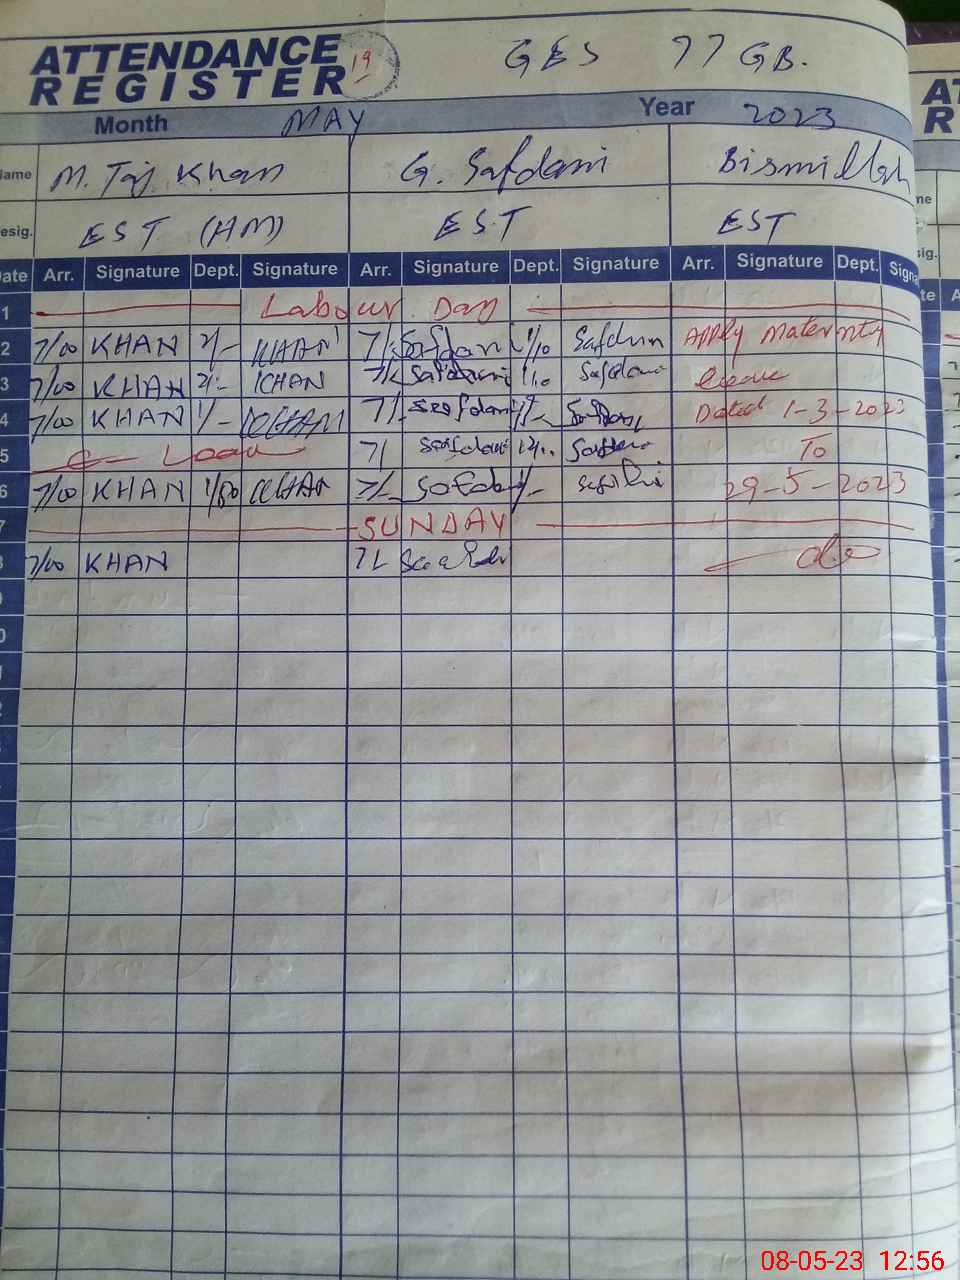 ATTENDANCE REGISTER 19 GES 77 GB.
Month MAY Year 2023
Name M. Taj Khan G. Safdani Bismillah
Desig. EST (HM) EST EST
Date Arr. Signature Dept. Signature Arr. Signature Dept. Signature Arr. Signature Dept. Signa
1 Labour Day
2 7/00 KHAN 2/- KHAN 7/ Safdani 1/10 Safdani Apply maternity
3 7/00 KHAN 2/- KHAN 7/ Safdani 1/10 Safdani leave
4 7/00 KHAN 1/- KHAN 7/ Safdani Dated 1-3-2023
5 Leave 7/ Safdani 12/.. To
6 7/00 KHAN 1/50 KHAN 7/- Safdani 29-5-2023
7 SUNDAY
8 7/00 KHAN 7/ do
08-05-23 12:56